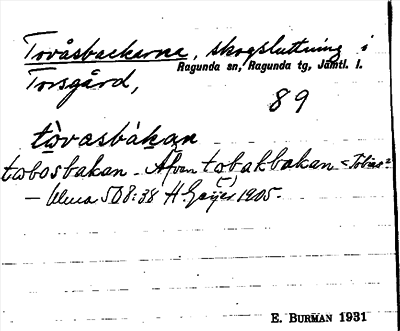 Tovåsbackarna, skogsluttning i
Ragunda sn, Ragunda tg, Jämtl. l.
Torsgård,
89
tòvasbákan
tobosbakan - Även tobakbakan = Tobias=
(–)
— Ulma 508:38 H. Geijer 1905.
E. BURMAN 1931